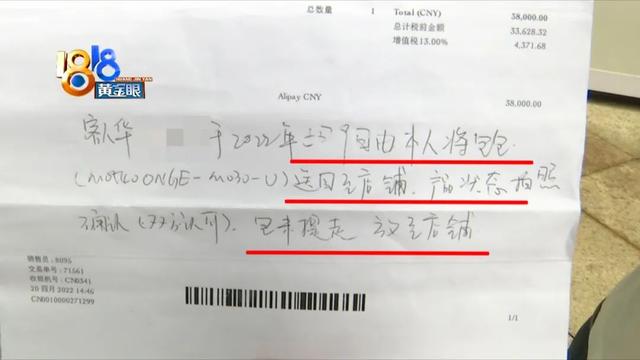 总数量 1 Total (CNY) 38,000.00
总计税前金额 33,628.32
增值税13.00% 4,371.68
1818
黄金眼
Alipay CNY 38,000.00
客人华 于2022年 日由本人将包包
送回至店铺,产品状态拍照
确认(双方认可),包未提走 放至店铺
销售员:8095
交易单号:71561
收银机号:CN0341
20 四月 2022 14:46
CN0010000271299
1/1